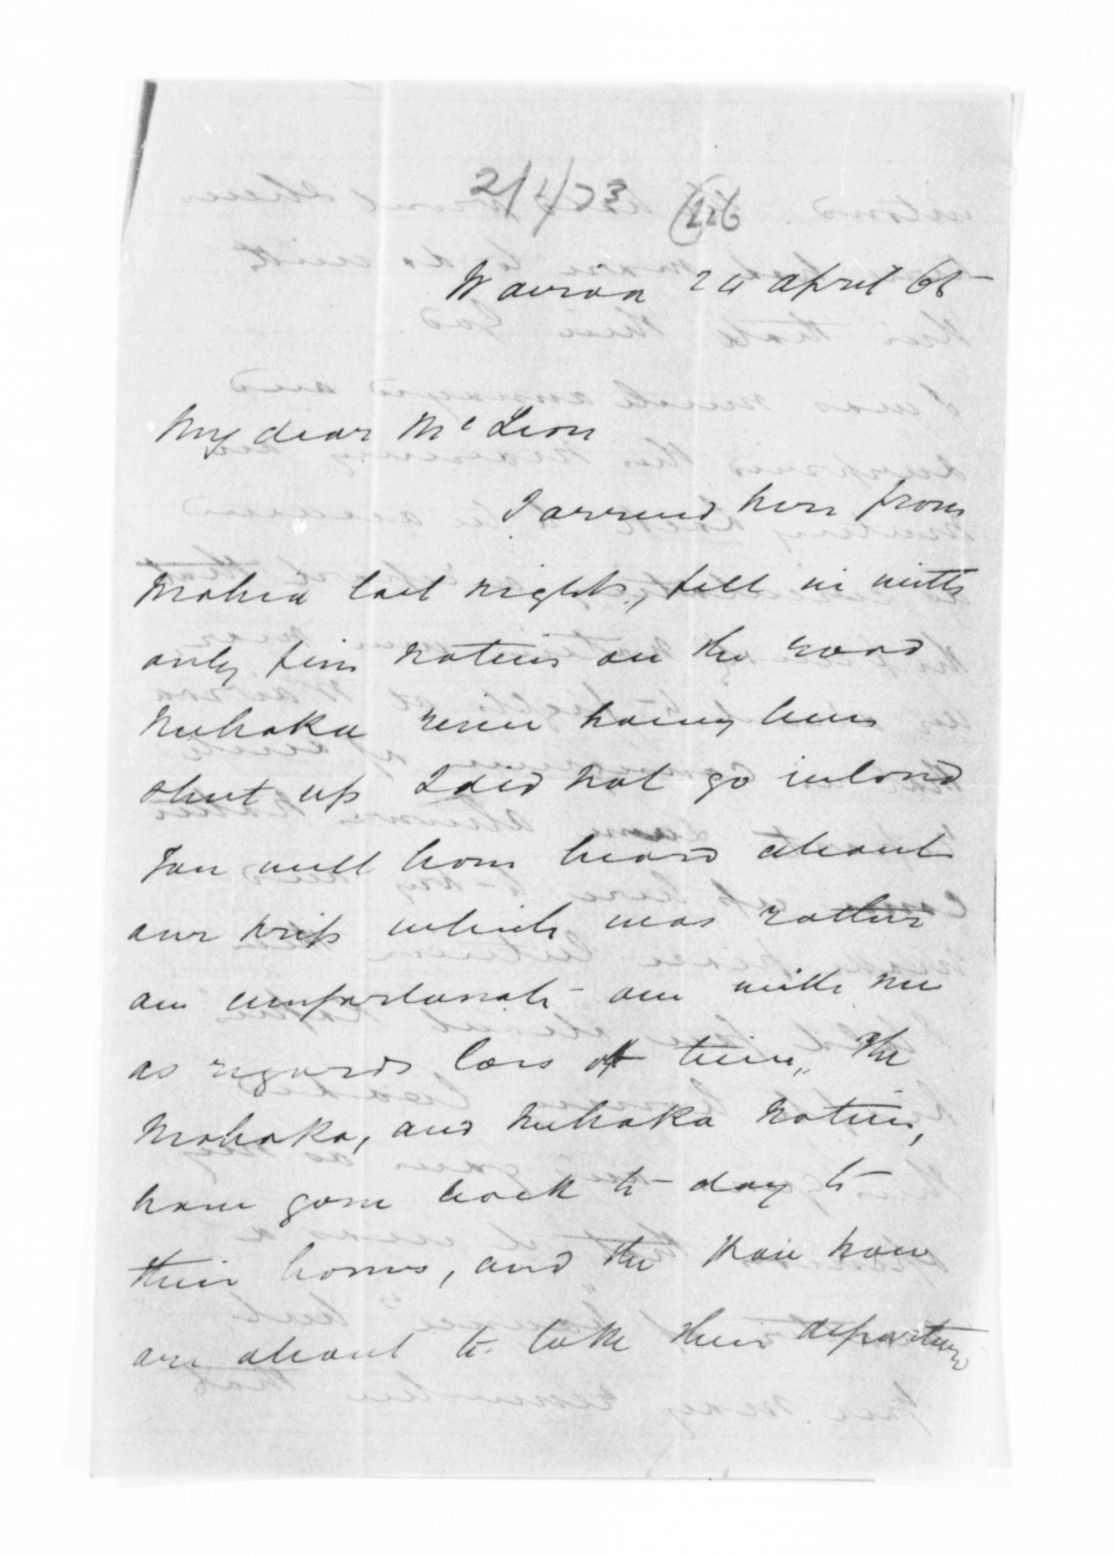 2/4/73 (46
Wairoa 24 April 66
My dear McLean
I arrived here from
Mahia last night, fell in with
only five natives on the road
Nuhaka river having been
shut up I did not go inland
You will have heard about
our trip which was rather
an unfortunate one with me
as regards loss of time, The
Mohaka, and Nuhaka natives,
have gone back to-day to
their homes, and the
are about to take their departure